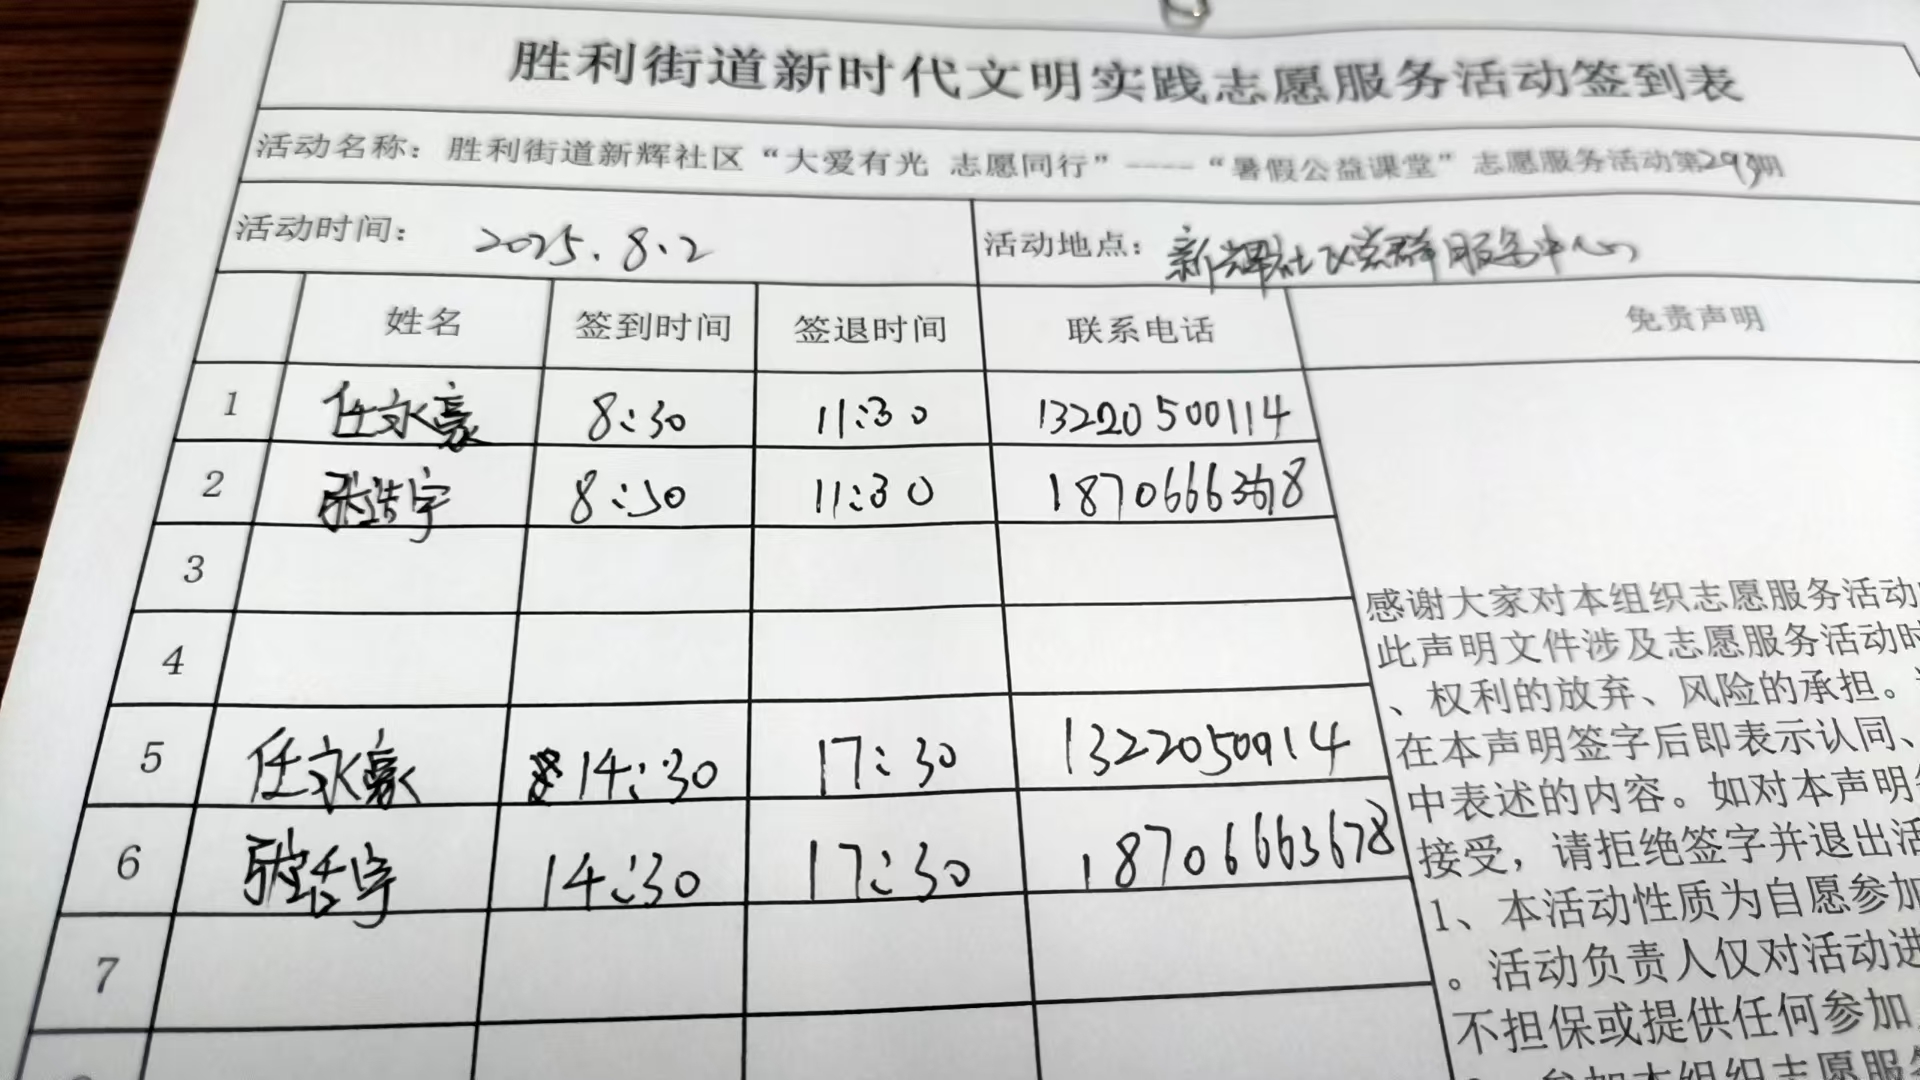 胜利街道新时代文明实践志愿服务活动签到表
活动名称：胜利街道新辉社区“大爱有光 志愿同行”----“暑假公益课堂”志愿服务活动第29期
活动时间： 2025.8.2 活动地点：新辉社区党群服务中心
姓名 签到时间 签退时间 联系电话 免责声明
1 任永豪 8:30 11:30 13220500114
2 张浩宇 8:30 11:30
3
4
5 任永豪 14:30 17:30
6 张浩宇 14:30 17:30 18706663678
7
感谢大家对本组织志愿服务活动
此声明文件涉及志愿服务活动时
、权利的放弃、风险的承担。
在本声明签字后即表示认同、
中表述的内容。如对本声明
接受，请拒绝签字并退出活
1、本活动性质为自愿参加
。活动负责人仅对活动进
不担保或提供任何参加
参加本组织志愿服